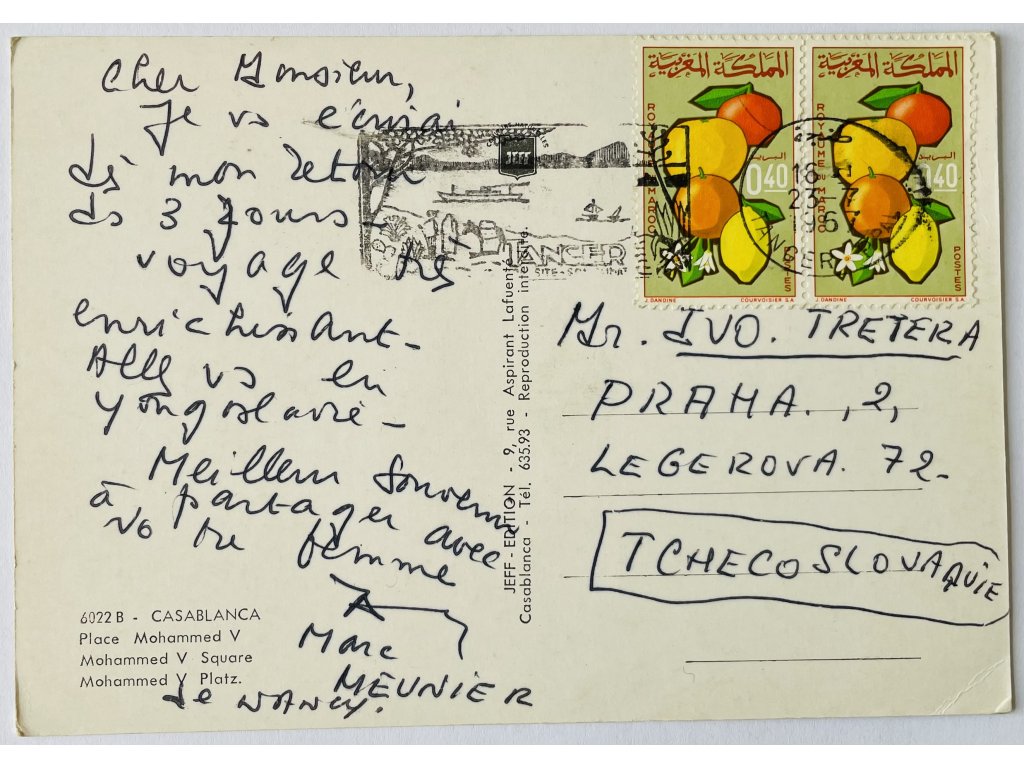 Cher Monsieur,
Je vs écrirai
dès mon retour
ds 3 jours -
voyage très
enrichissant -
Allez vs en
Yougoslavie -
Meilleur souvenir
à partager avec
votre femme
Marc
MEUNIER
de NANCY.
6022 B - CASABLANCA
Place Mohammed V
Mohammed V Square
Mohammed V Platz.
JEFF - EDITION - 9, rue Aspirant Lafuente
Casablanca - Tél. 635.93 - Reproduction interdite.
JEFF
TANGER
المملكة المغربية
ROYAUME DU MAROC
البريد
0.40
POSTES
J. DANDINE
COURVOISIER S.A.
المملكة المغربية
ROYAUME DU MAROC
البريد
0.40
POSTES
J. DANDINE
COURVOISIER S.A.
TANGER
Mr. IVO. TRETERA
PRAHA. , 2,
LEGEROVA. 72-
TCHECOSLOVAQUIE